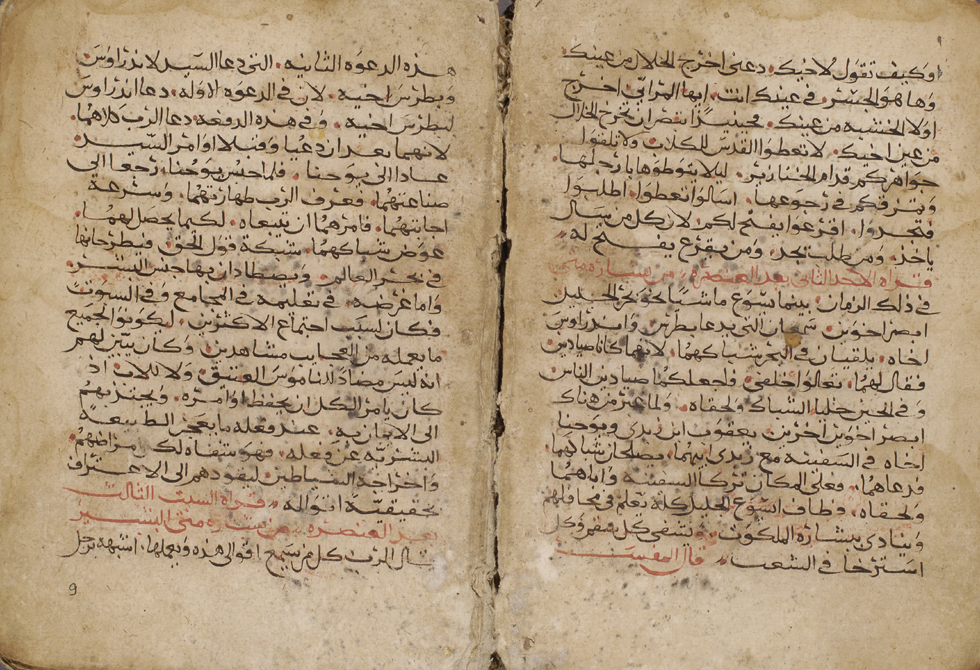 اوكيف تقول لاخيك دعني اخرج الخلال من عينك
وها هو الجسر في عينك انت ايها المرائي اخرج
اولا الخشبه من عينك فحينيذ تخرج الخلال
من عين اخيك لا تعطوا القدس للكلاب ولا تلقوا
جواهركم قدام الخنازير ليلا يتوطوها بارجلها
اسالوا تعطوا اطلبوا
فتجدوا اقرعوا يفتح لكم لان كل من سال
ياخذ ومن طلب يجد ومن يقرع يفتح له
قراه الاحد الثاني بعد العنصره من بشاره متى
في ذلك الزمان بينما يسوع ماشيا نحو بحر الجليل
ابصر اخوين سمعان الذي يدعا بطرس واندراوس
اخاه يلقيان في البحر شباكهما لانهما كانا صيادين
فقال لهما تعالوا خلفي فاجعلكما صيادين الناس
وفي الحين خليا الشباك ولحقاه ولما عبر من هناك
ابصر اخوين اخرين يعقوب ابن زبدي ويوحنا
اخاه في السفينه مع زبدي ابيهما مصلحان شباكهما
فدعاهما فعلى المكان تركا السفينه واباهما
ولحقاه وطاف يسوع الجليل كله يعلم في محافلهم
وينادي ببشارة الملكوت ويشفي كل سقم وكل
استرخا في الشعب قال المفسر
هذه الدعوه الثانيه التي دعا السيد لاندراوس
وبطرس اخيه لان في الدعوه الاوله دعا اندراوس
لبطرس اخيه وفي هذه الدفعه دعا الرب كلاهما
لانهما بعد ان دعيا وقبلا اوامر السيد
عادا الى يوحنا فلما حبس يوحنا رجعا الى
صناعتهما فعرف الرب طهارتهما وسرعة
اجابتهما فامرهما ان يتبعاه لكيما يحصل لهما
عوض شباكهما شبكة قول الحق فيطرحانها
في بحر العالم ويصطادان بها جنس البشر
واما غرضه في تعليمه في المجامع وفي السبوت
فكان لسبب اجتماع الاكثرين ليكونوا الجميع
ما يعمله من العجايب مشاهدين وكان يبين لهم
انه ليس مضاد لناموس العتيق
كان يامر الكل ان يحفظ اوامره ويجذبهم
الى الايمان به عند فعله ما يعجز الطبيعة
البشريه عن فعله فهو شفاه لكل امراضهم
واخراجه الشياطين ليقودهم الى الاعتراف
بحقيقة اقواله قراه السبت الثالث
بعد العنصره من بشاره متى البشير
قال الرب كل من سمع اقوالي هذه ويعملها اشبهه برجل
9